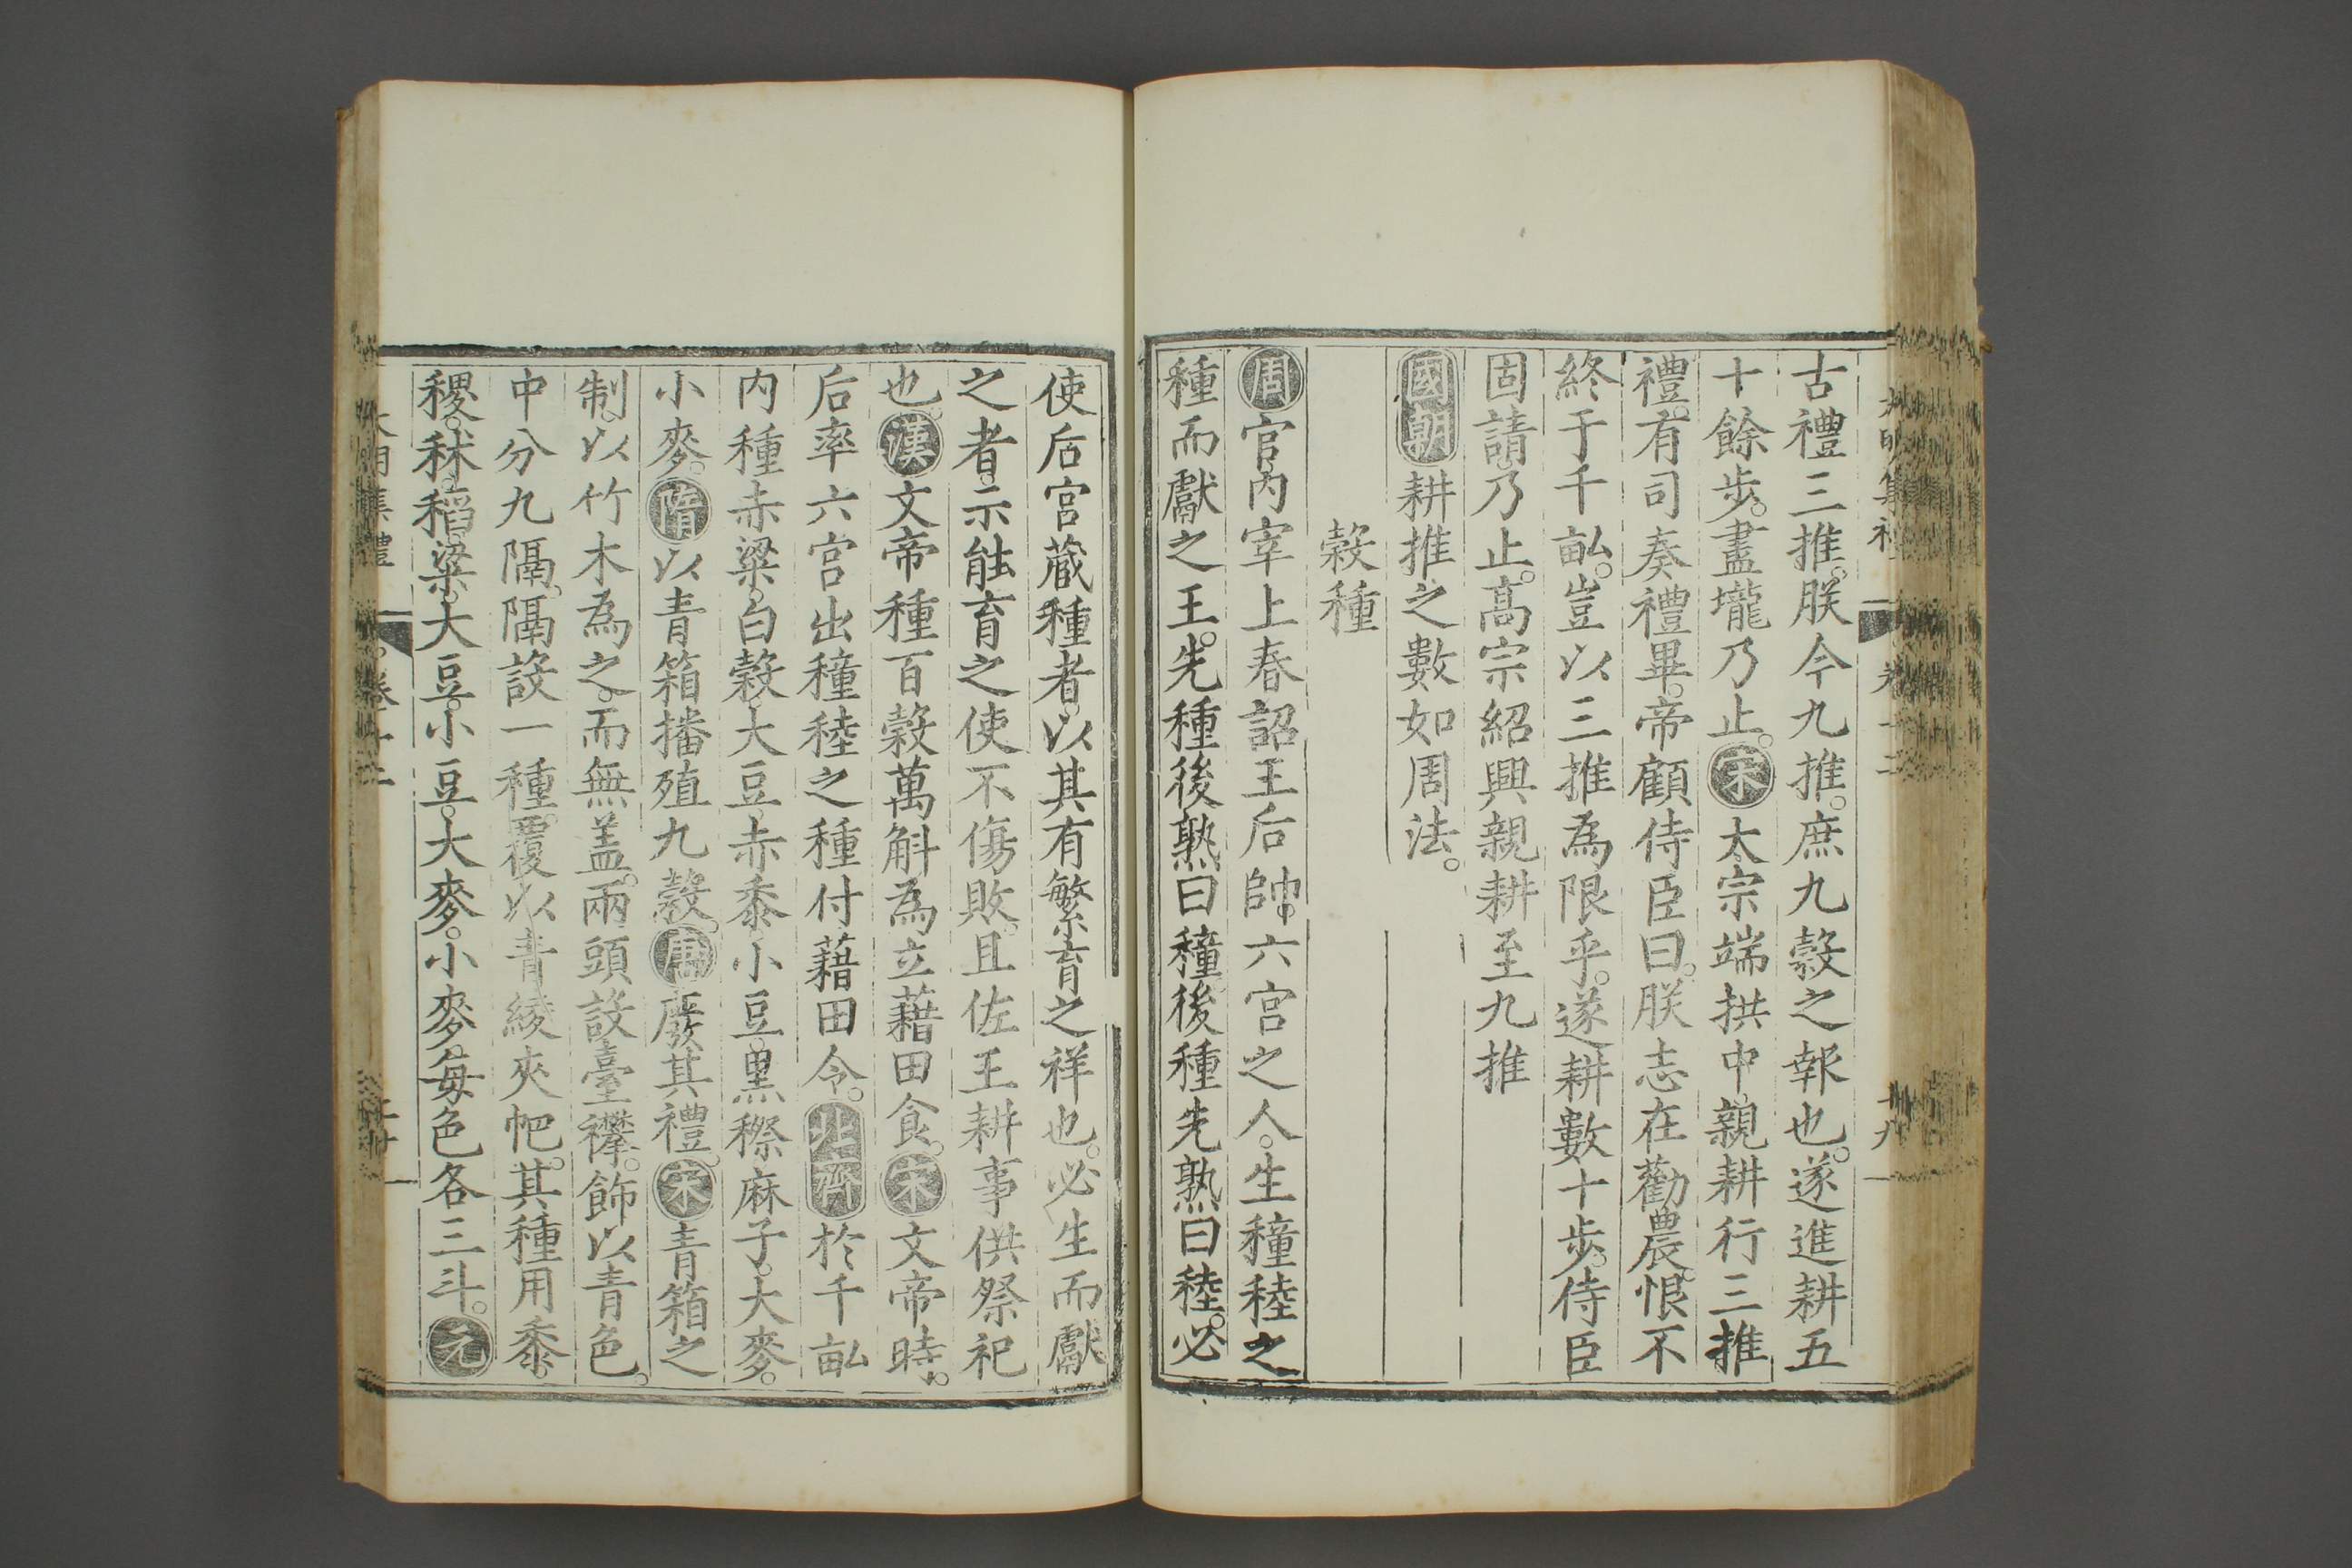 古禮三推。朕今九推。庶九糓之報也。遂進耕五
十餘步。盡壠乃止。宋太宗端拱中親耕行三推
禮。有司奏禮畢。帝顧侍臣曰。朕志在勸農。恨不
終于千畝。豈以三推爲限乎。遂耕數十步。侍臣
固請乃止。髙宗紹興親耕至九推
國朝耕推之數如周法。
糓種
周官内宰上春詔王后帥六宫之人。生穜稑之
種而獻之王。先種後熟曰穜。後種先熟曰稑。必
使后宫蔵種者。以其有繁育之祥也。必生而獻
之者。示能育之使不傷敗。且佐王耕事供祭祀
也。漢文帝種百糓萬斛為立藉田食。宋文帝時。
后率六宫出穜稑之種付藉田令。北齊於千畝
内種赤粱。白糓。大豆。赤黍。小豆。黒穄。麻子。大麥。
小麥。隋以青箱播殖九糓。唐廢其禮。宋青箱之
制。以竹木為之。而無盖。兩頭設臺襻。飾以青色。
中分九隔。隔設一種。覆以青綾夾帊。其種用黍。
稷。秫。稻。粱。大豆。小豆。大麥。小麥。每色各三斗。元
大明集禮 卷十二